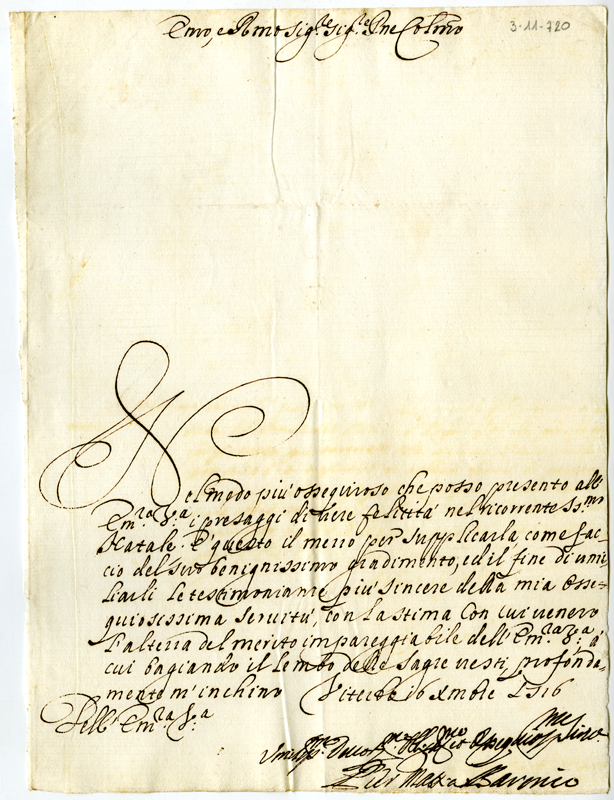 Emo, e Rmo Sig.re Sig.re Pne Colmo
3-11-720
Nel modo piu' ossequioso che posso presento all'
Em.ra V.ra i presaggi di vere felicità nel ricorrente SS.mo
Natale. E' questo il mezzo per supplicarla come fac-
cio del suo benignissimo gradimento, ed il fine di umi
liarli le testimonianze piu' sincere della mia osse-
quiosissima servitu', con la stima con cui venero
l'altezza del merito impareggiabile dell' Em.ra V.ra à
cui bagiando il lembo delle sagre vesti, profonda-
mente m'inchino Viterbo 16 Xmbre 1716
Dell' Em.ra V.ra
Pier Matt.a Baronio